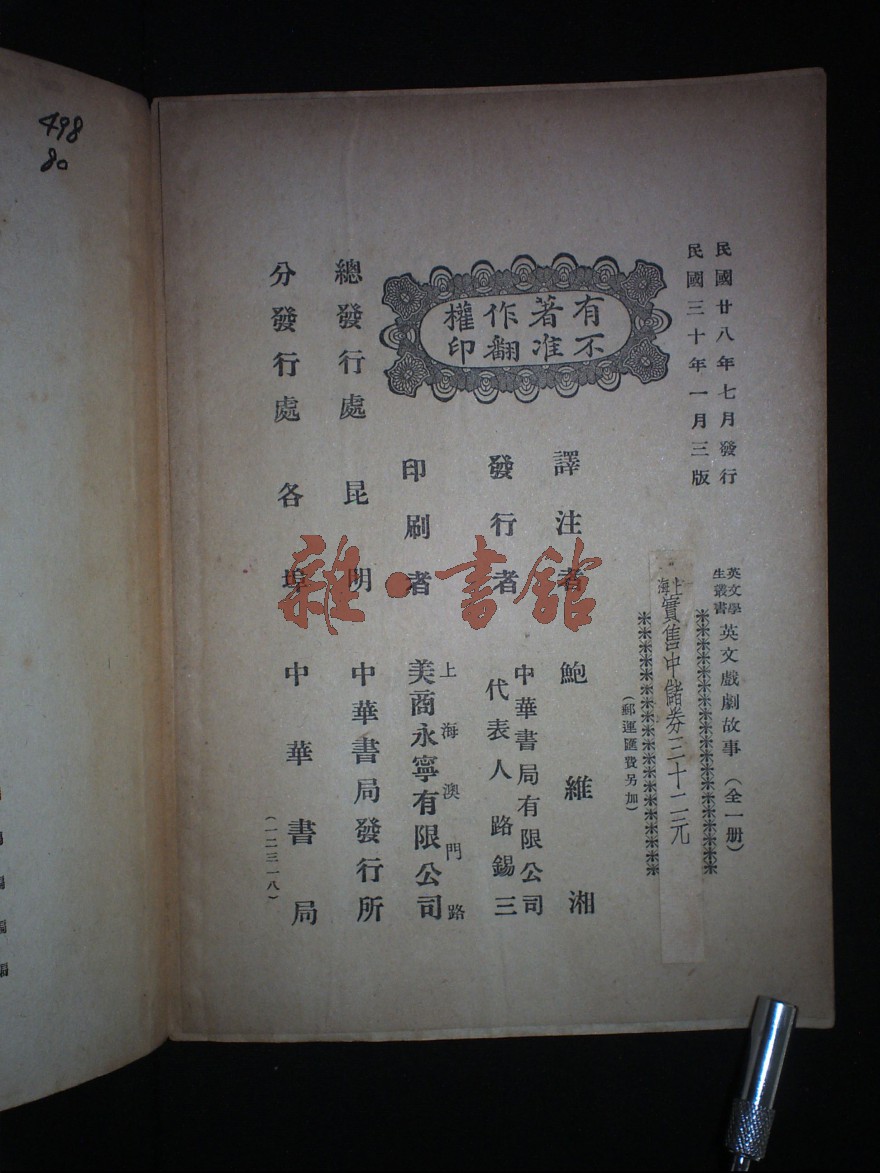 民國廿八年七月發行
民國三十年一月三版
英文學
生叢書
英文戲劇故事（全一册）
上海
實售中儲券三十二元
（郵運匯費另加）
有著作權
不准翻印
譯注者 鮑維湘
發行者 中華書局有限公司
代表人路錫三
印刷者 上海澳門路
美商永寧有限公司
總發行處 昆明 中華書局發行所
分發行處 各埠 中華書局
（一二三一八）
雜·書館
498
80
編
編